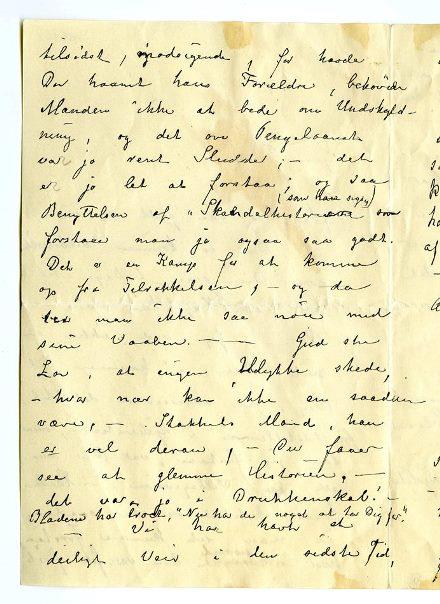 tilsidst, imødeigende, for havde
Du kaamt hans Forældre, behøvede
Manden ikke at bede om Undskyld-
ning, og det om Pengelaanet
var jo rent Sludder; - det
er jo let at forstaa; og saa
(som hans siger)
Benyttelsen af "Skandalhistorierne som
forstaaer man jo ogsaa saa godt.
Det er en Kamp for at komme
op fra Tilsøkkelsen, - og da
er man ikke saa nøie med
sine Vaaben. - - Gud ske
Lov, at ingen Ulykke skede,
- hvor nær kan ikke en saadan
være, - Stakkels Mand, han
er vel derover, - Du faaer
see at glemme Historien, -
det var jo i Drukkenskab! -
Bladene har troet, "Nu har de noget at ta Dig for".
- Vi har havt et
deiligt Veir i den sidste Tid,